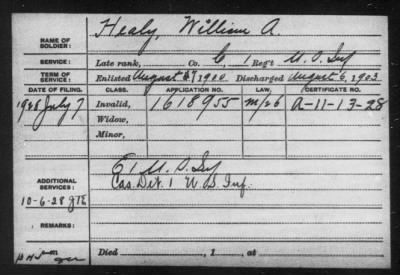 NAME OF SOLDIER: Healy, William A.
SERVICE: Late rank, Co. C, 1 Reg't U.S. Inf
TERM OF SERVICE: Enlisted August 1900 Discharged August 6, 1903
DATE OF FILING. CLASS. APPLICATION NO. LAW. CERTIFICATE NO.
1928 July 7 Invalid, 1618955 A-11-13-28
Widow,
Minor,
ADDITIONAL SERVICES: E 1 U.S. Inf
Cas. Det. 1 U.S. Inf.
10-6-28
REMARKS:
Died , 1 , at